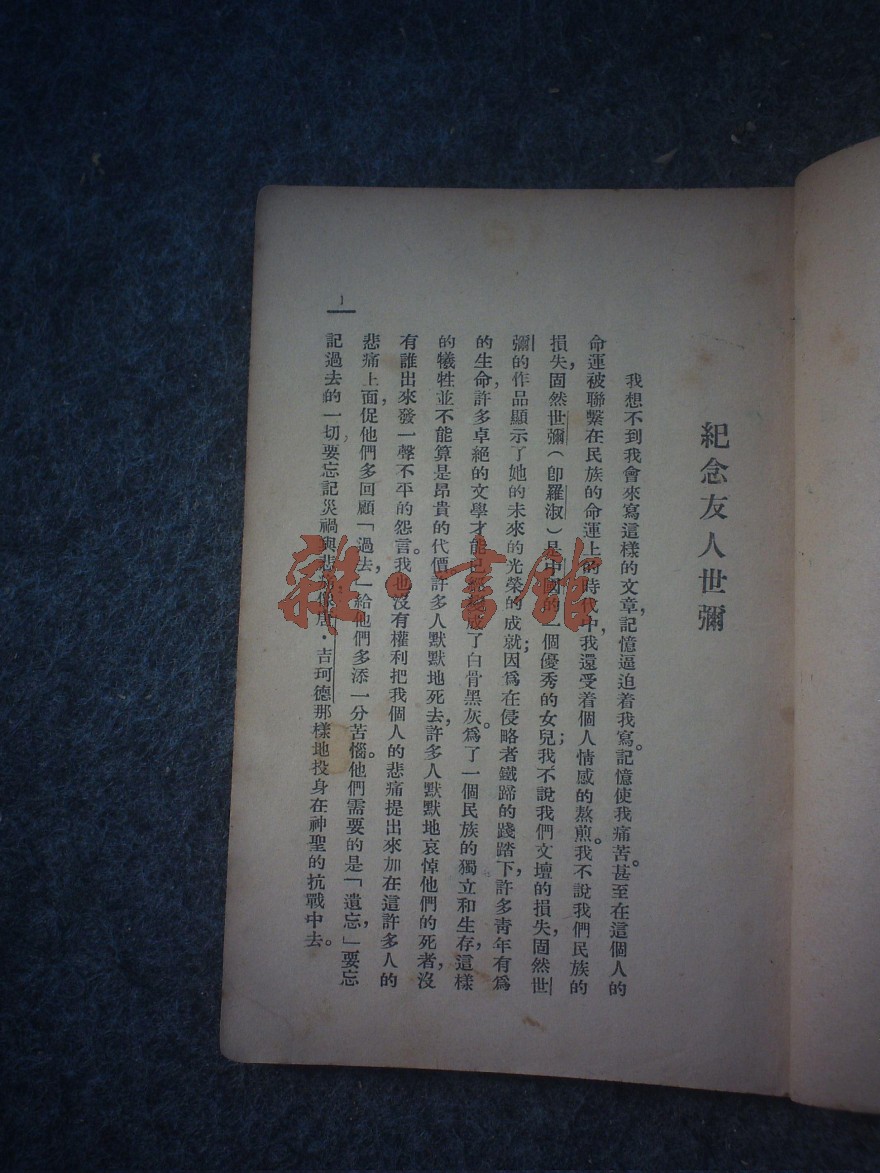 紀念友人世彌
我想不到我會來寫這樣的文章，記憶逼迫着我寫。記憶使我痛苦。甚至在這個人的
命運被聯繫在民族的命運上的時代中，我還受着個人情感的熬煎。我不說我們民族的
損失，固然世彌（卽羅淑）是中國的一個優秀的女兒；我不說我們文壇的損失，固然世
彌的作品顯示了她的未來的光榮的成就；因爲在侵略者鐵蹄的踐踏下，許多靑年有爲
的生命，許多卓絕的文學才能已經變成了白骨黑灰。爲了一個民族的獨立和生存，這樣
的犧牲並不能算是昂貴的代價。許多人默默地死去，許多人默默地哀悼他們的死者，沒
有誰出來發一聲不平的怨言。我也沒有權利把我個人的悲痛提出來加在這許多人的
悲痛上面，促他們多回顧「過去」給他們多添一分苦惱。他們需要的是「遺忘，」要忘
記過去的一切，要忘記災禍與悲 像唐·吉珂德那樣地投身在神聖的抗戰中去。
1
雜·書館